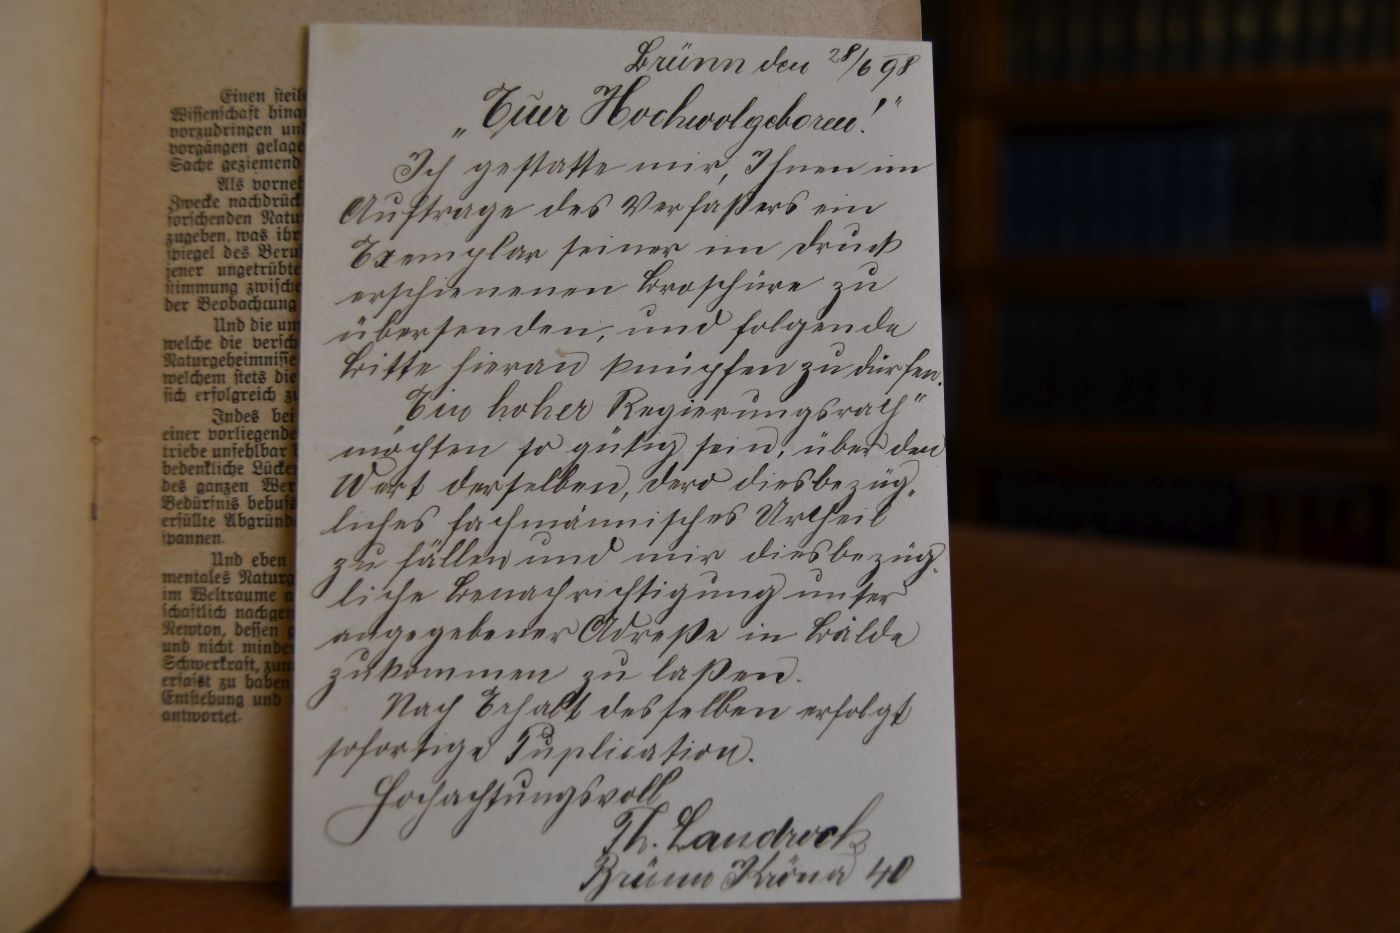 Einen steil
Wissenschaft hina
vorzudringen und
vorgängen gelage
Sache geziemend
Als vorneh
Zwecke nachdrück
forschenden Natu
zugeben, was ihr
spiegel des Beru
jener ungetrübte
stimmung zwische
der Beobachtung
Und die um
welche die versch
Naturgeheimnisse
welchem stets die
sich erfolgreich zu
Indes bei
einer vorliegende
triebe unfehlbar
bedenkliche Lücken
des ganzen Wer
Bedürfnis behufs
erfüllte Abgründ
spannen.
Und eben
mentales Naturg
im Weltraume a
schaftlich nachgen
Newton, dessen g
und nicht minder
Schwerkraft, zum
erfasst zu haben
Entstehung und
antwortet.
Brünn den 28/6 98
„Euer Hochwolgeboren!"
Ich gestatte mir, Ihnen im
Auftrage des Verfaßers ein
Exemplar seiner im Druck
erschienenen Broschüre zu
übersenden, und folgende
Bitte hieran knüpfen zu dürfen.
Ein hoher Regierungsrath"
möchten so gütig sein, über den
Wert derselben, dero diesbezüg-
liches fachmännisches Urtheil
zu fällen und mir diesbezüg-
liche Benachrichtigung unter
angegebener Adreße in Bälde
zukommen zu laßen.
Nach Erhalt desselben erfolgt
sofortige Puplication.
Hochachtungsvoll
Th. Landrock
Brünn Kröna 40